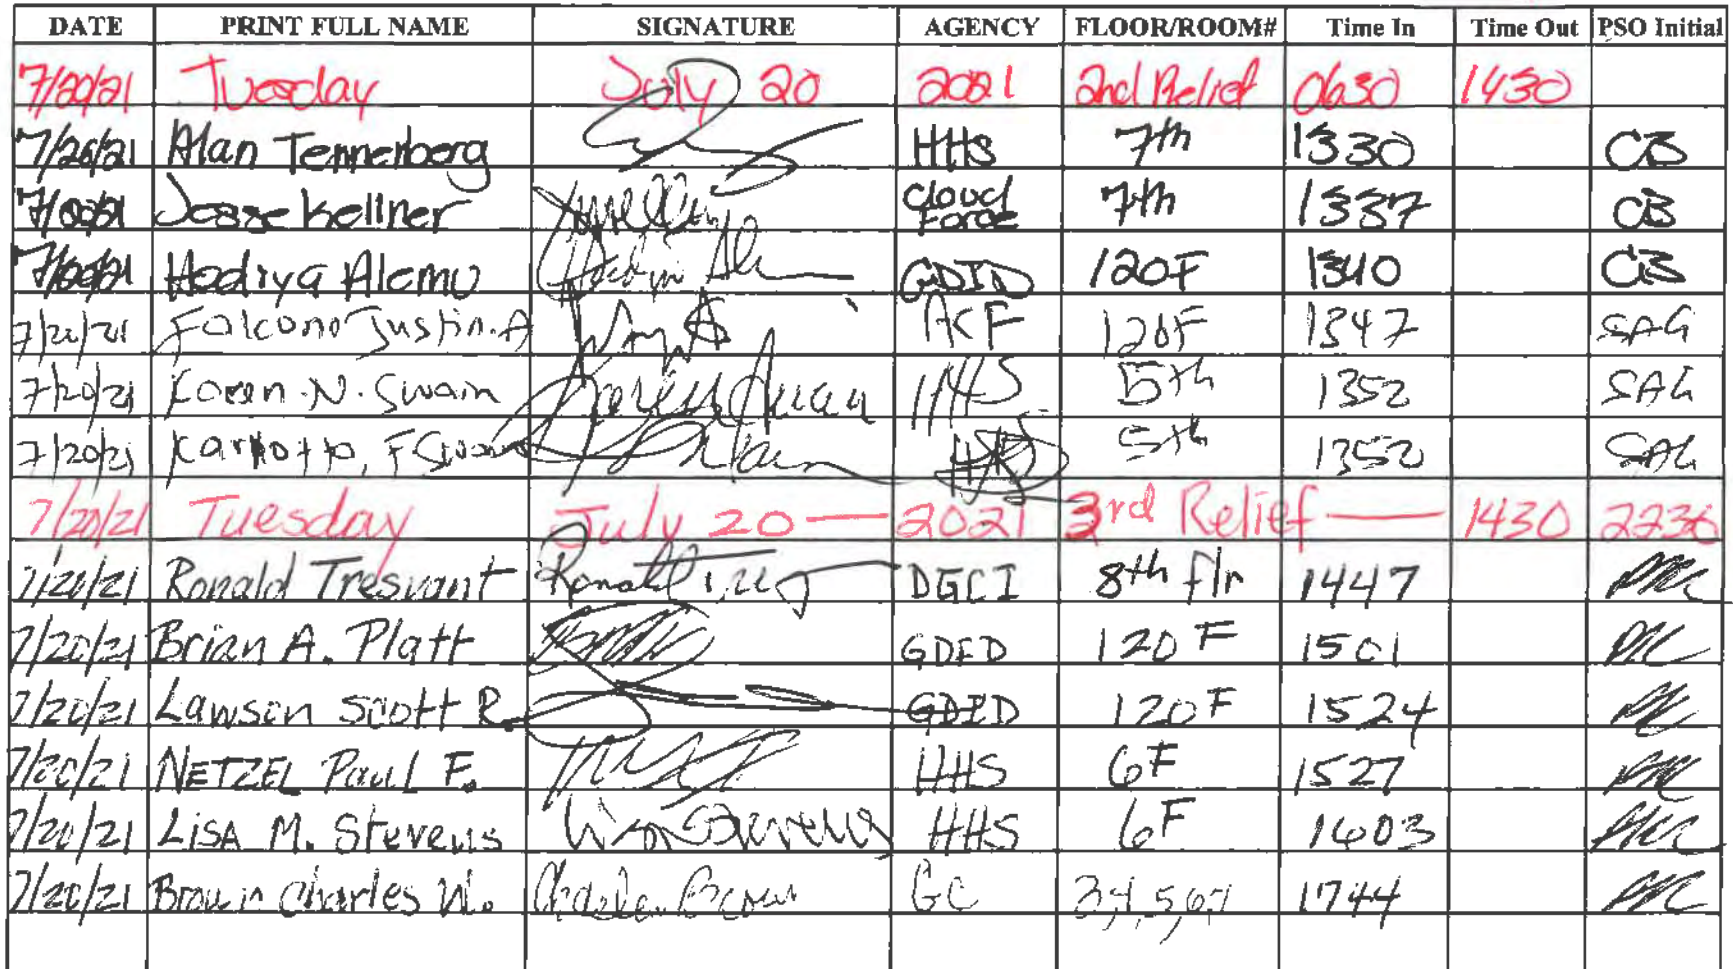 DATE PRINT FULL NAME SIGNATURE AGENCY FLOOR/ROOM# Time In Time Out PSO Initial
7/20/21 Tuesday July 20 2021 2nd Relief 0630 1430
7/20/21 Alan Tennenberg HHS 7th 1330 CB
7/20/21 Jesse Kellner Cloud Force 7th 1337 CB
7/20/21 Hadiya Alemu GDID 120F 1340 CB
7/20/21 Falcone Justin.A ACF 120F 1347 SAG
7/20/21 Karen.N.Swain HHS 5th 1352 SAG
7/20/21 5th 1352 SAG
7/20/21 Tuesday July 20 — 2021 3rd Relief — 1430 2230
7/20/21 Ronald Tresvant Ronald DGCI 8th flr 1447
7/20/21 Brian A. Platt GDID 120 F 1501
7/20/21 Lawson Scott R. GDID 120 F 1524
7/20/21 NETZEL Paul F. HHS 6F 1527
7/20/21 LiSA M. Stevens Stevens HHS 6F 1603
7/20/21 Brown Charles W. Charles Brown GC 3,4,5,6,7 1744